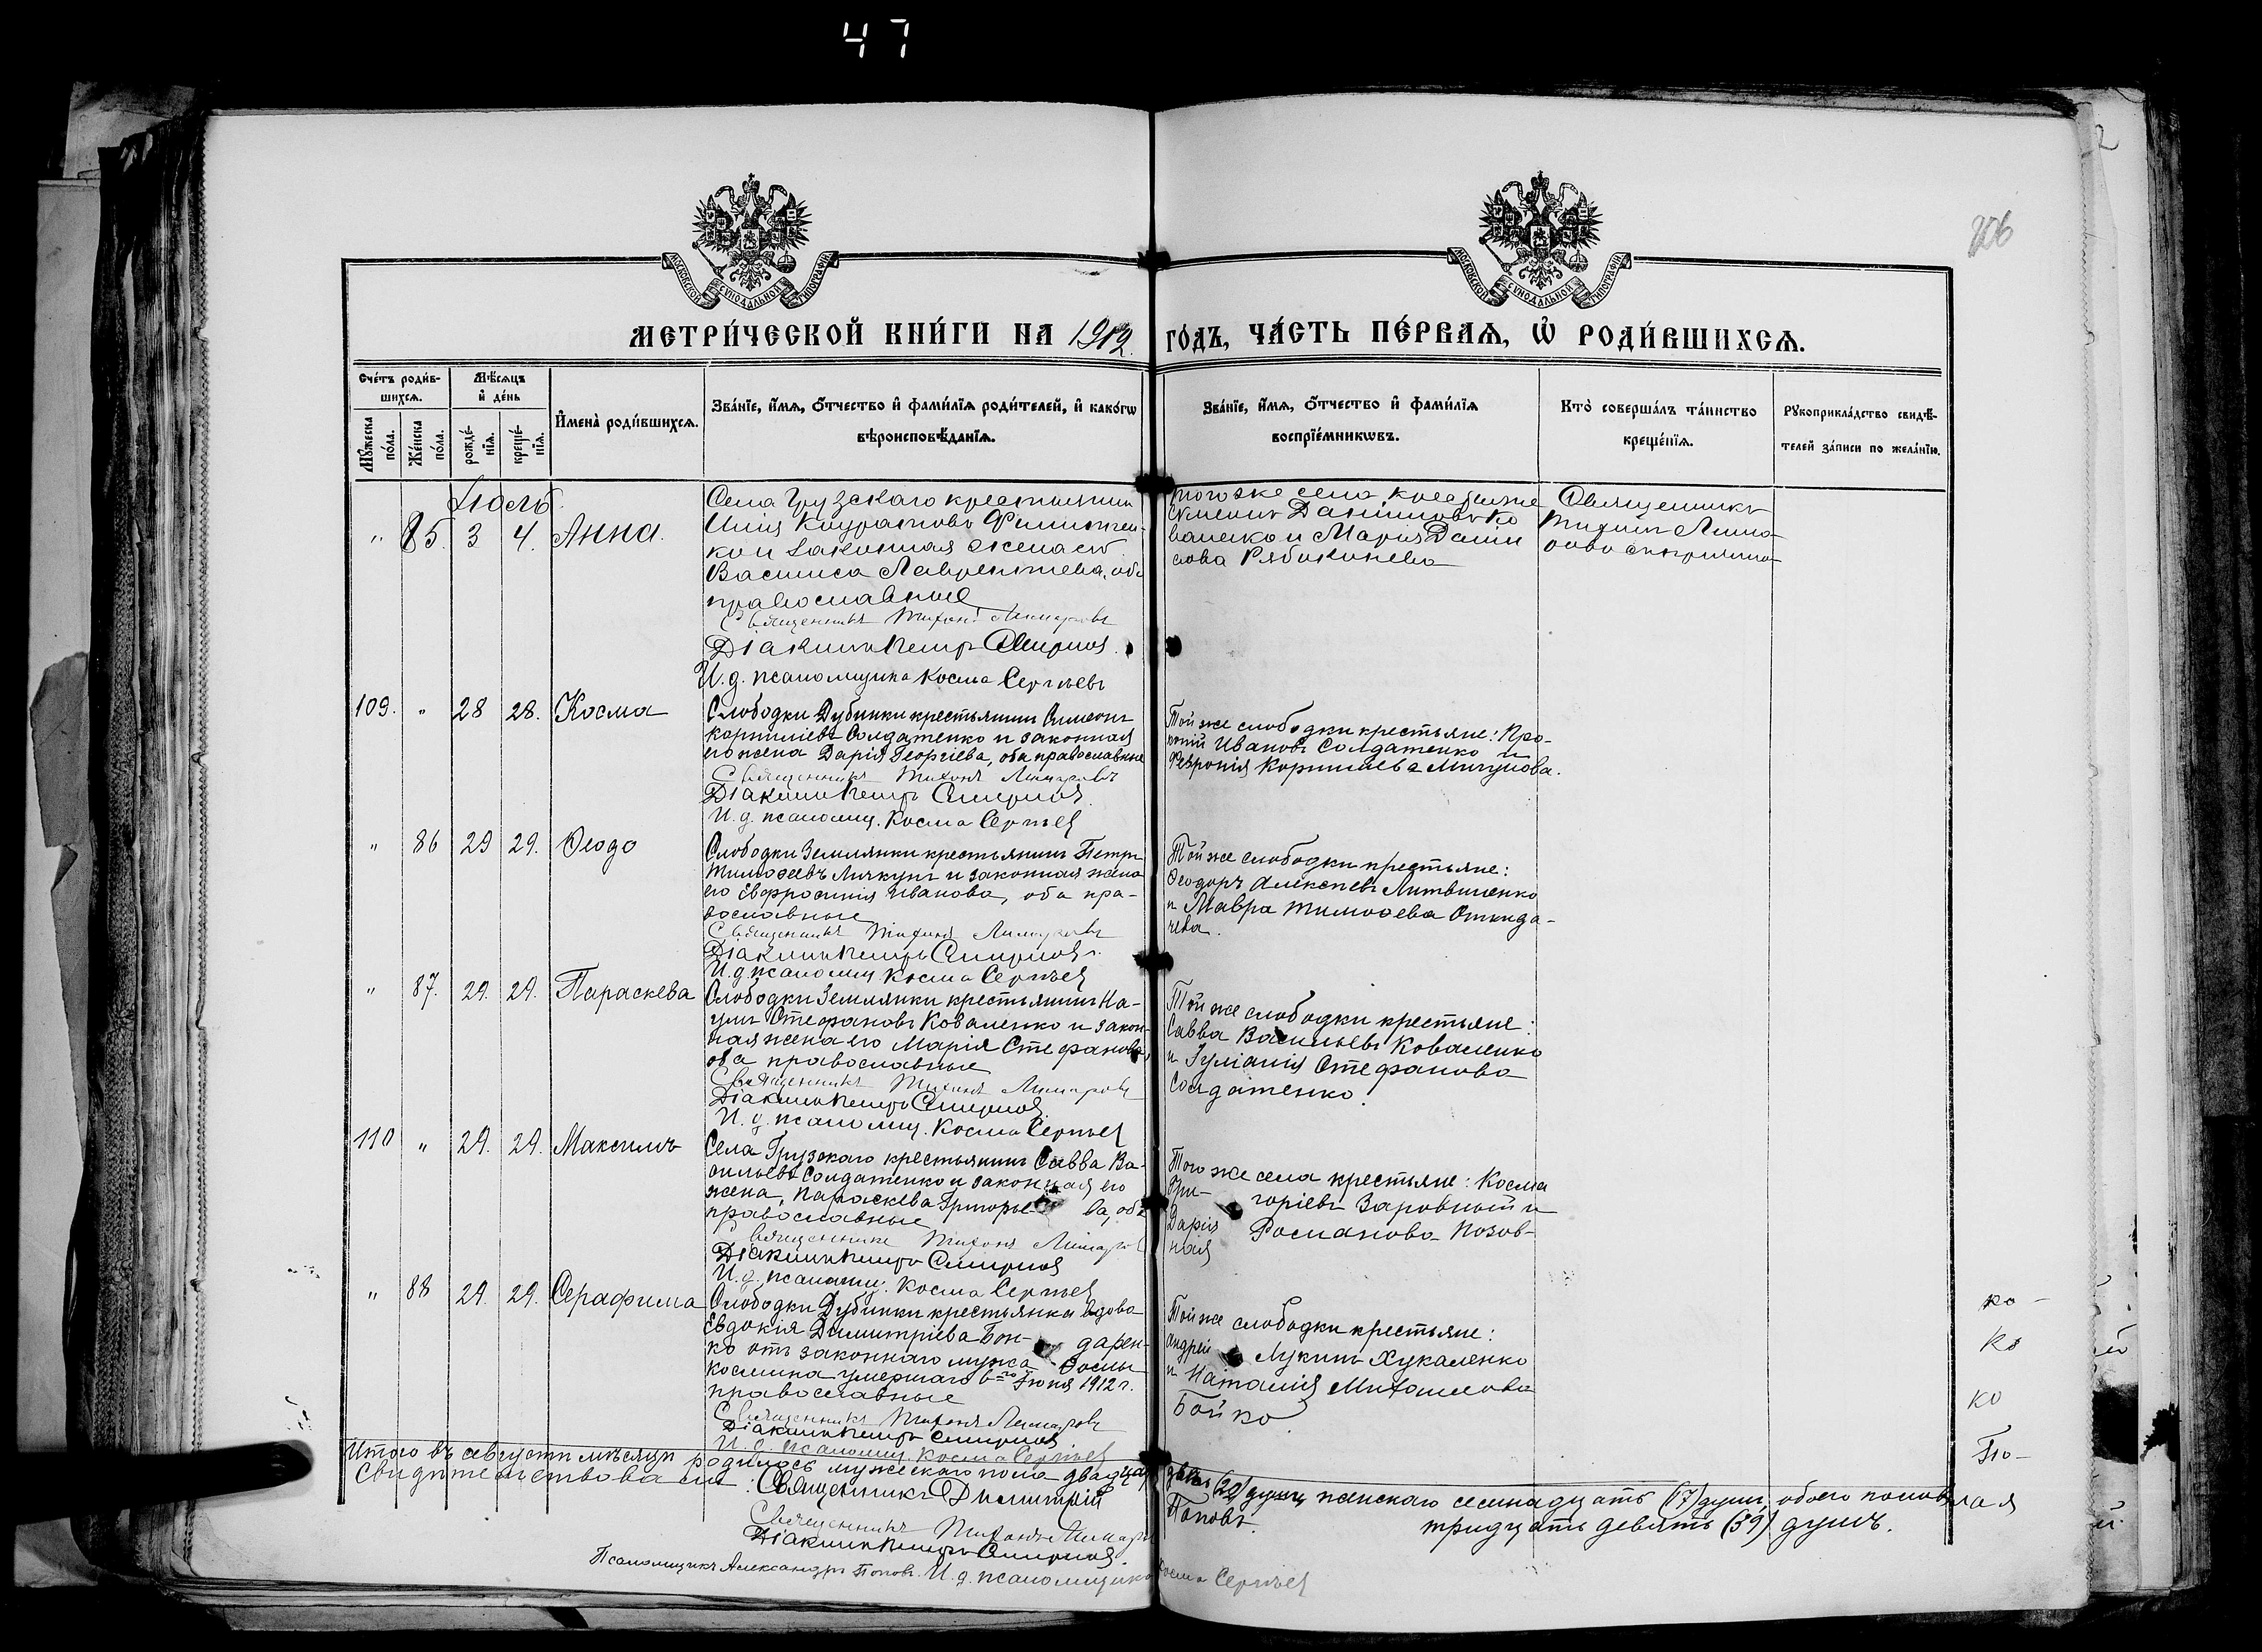 47
206
МОСКОВСКОЙ СѴНОДАЛЬНОЙ ТИПОГРАФІИ
МОСКОВСКОЙ СѴНОДАЛЬНОЙ ТИПОГРАФІИ
МЕТРИ́ЧЕСКОЙ КНИ́ГИ НА 1912 ГО́ДЪ, ЧА́СТЬ ПЕ́РВАѦ, Ѡ҆ РОДИ́ВШИХСѦ.
Сче́тъ роди́в-
шихсѧ.
Мꙋ́жеска по́ла.
Же́нска по́ла.
Мѣ́сѧцъ
и҆ де́нь
рожде́-
нїѧ.
креще́-
нїѧ.
И҆мена̀ роди́вшихсѧ.
Зва́нїе, и҆́мѧ, ѻ҆́тчество и҆ фами́лїѧ роди́телей, и҆ како́гѡ
вѣроисповѣ́данїѧ.
Зва́нїе, и҆́мѧ, ѻ҆́тчество и҆ фами́лїѧ
воспрїе́мникѡвъ.
Кто̀ соверша́лъ та́инство
креще́нїѧ.
Рꙋкоприкла́дство свидѣ́-
телей за́писи по жела́нїю.
Іюль
" 85. 3 4. Анна.
Села Грузскаго крестьянинъ
Илія Кондратовъ Филипчен-
ко и законная жена его
Василиса Лаврентіева, оба
православные
Священникъ Тихонъ Лимаровъ
Діаконъ Петръ Смирнов
И. д. псаломщика Косма Сергѣевъ
Того же села крестьяне
Симеонъ Даніиловъ Ко
валенко и Марія Дани
лова Рябоконева
Священникъ
Тихонъ Лима-
ровъ съ причтомъ
109. " 28 28. Косма
Слободки Дубинки крестьянинъ Симеонъ
Корниліевъ Солдатенко и законная
его жена Дарія Георгіева, оба православные
Священникъ Тихонъ Лимаровъ
Діаконъ Петръ Смирнов
И. д. псаломщ. Косма Сергѣев
Той же слободки крестьяне: Про-
копій Ивановъ Солдатенко и
Февронія Корнилева Мигунова.
" 86 29 29. Ѳеодо
Слободки Землянки крестьянинъ Петръ
Тимоѳеевъ Лячкунъ и законная жена
его Евфросинія Иванова, оба пра-
вославные
Священникъ Тихонъ Лимаровъ
Діаконъ Петръ Смирнов
И. д. псаломщ. Косма Сергѣев
Той же слободки крестьяне:
Ѳеодоръ Алексѣевъ Литвиненко
и Мавра Тимоѳеева Откида-
чева.
" 87. 29. 29. Параскева
Слободки Землянки крестьянинъ На-
умъ Стефановъ Коваленко и закон-
ная жена его Марія Стефанова,
оба православные
Священникъ Тихонъ Лимаровъ
Діаконъ Петръ Смирнов
И. д. псаломщ. Косма Сергѣев
Той же слободки крестьяне:
Савва Васильевъ Коваленко
и Іуліанія Стефанова
Солдатенко.
110 " 29. 29. Максимъ
Села Грузскаго крестьянинъ Савва Ва-
сильевъ Солдатенко и законная его
жена, Параскева Григорье- ва, оба
православные
Священникъ Тихонъ Лимаров
Діаконъ Петръ Смирнов
И. д. псаломщ. Косма Сергѣев
Того же села крестьяне: Косма
Гри- горіевъ Заровный и
Дарія Романова Позов-
ная
" 88 29. 29. Серафима
Слободки Дубинки крестьянка вдова
Евдокія Димитріева Бон- дарен-
ко отъ законнаго мужа Ѳомы
Космина умершаго 6-го Іюня 1912 г.
православные
Священникъ Тихонъ Лимаровъ
Діаконъ Петръ Смирнов
И. д. псаломщ. Косма Сергѣев
Той же слободки крестьяне:
Андрей Лукинъ Хукаленко
и Наталія Михаилова
Бойко
ко-
ко
ко
По-
Итого въ августѣ мѣсяцѣ родилось мужескаго пола двадцать два (22) душъ женскаго семнадцать (17) душ, обоего пола
тридцать девять (39) душъ.
Свидѣтельствовали: Священникъ Димитрій Поповъ.
Священникъ Тихонъ Лимаров
Діаконъ Петръ Смирнов.
Псаломщикъ Александръ Поповъ. И. д. псаломщика Косма Сергѣев